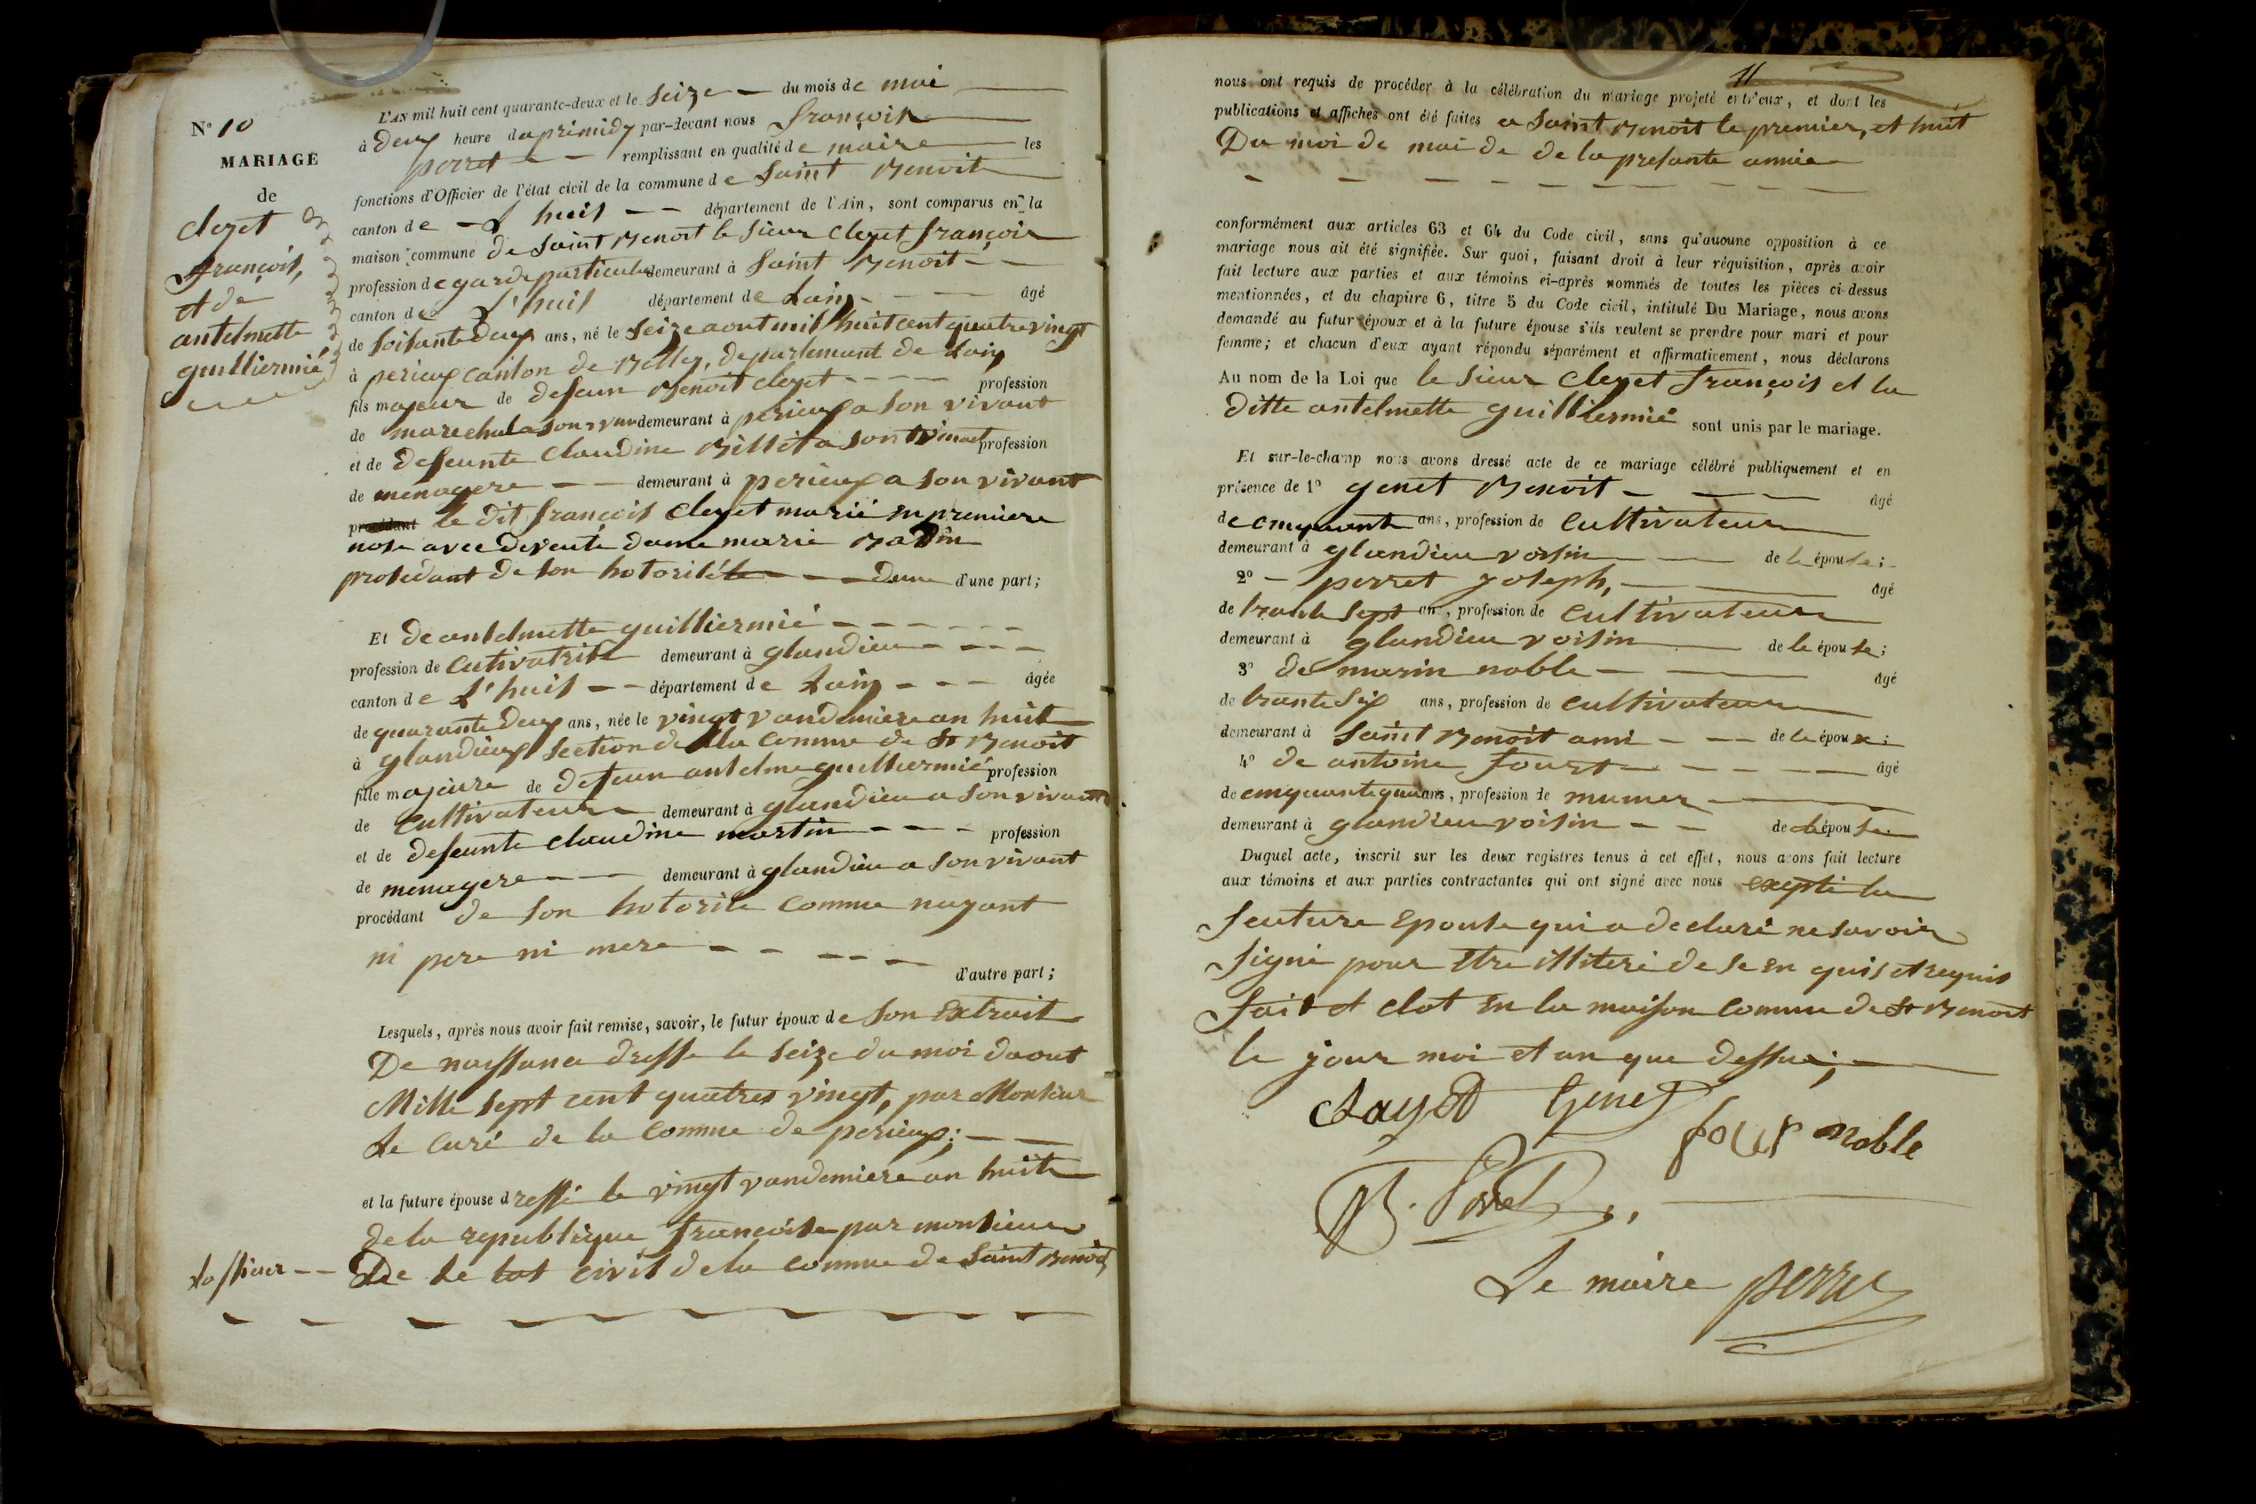 N° 10
MARIAGE
de
cleyet
françois,
et de
antelmette
guilliermié
L'AN mil huit cent quarante-deux et le seize du mois de mai
à deux heure daprimidy par-devant nous françois
perret remplissant en qualité de maire les
fonctions d'Officier de l'état civil de la commune de Saint Benoit
canton de L'huis département de l'Ain, sont comparus en la
maison commune de Saint Benoit le Sieur cleyet françois
profession de garde particulier demeurant à Saint Benoit
canton de L'huis département de Lain âgé
de soisante deux ans, né le seize aout mil huit cent quatre vingt
à perieux canton de Belley, departement de Lain
fils majeur de defeun Benoit cleyet profession
de marechal a son vivan demeurant à perieux a son vivant
et de defeunte claudine Billet a son vivant profession
de menagere demeurant à perieux a son vivant
procédant le dit françois cleyet marié en premiere
nose avec deveute dame marie
prosedant de son hotorité d'une part;
Et de antelmette guilliermié
profession de cutivatrise demeurant à glandieu
canton de L'huis département de Lain âgée
de quarante deux ans, née le vingt vandemiere an huit
à glandieux section de la comme de St Benoit
fille majeure de defeun antelme guilliermié profession
de cultivateur demeurant à glandieu a son vivant
et de defeunte claudine martin profession
de menagere demeurant à glandieu a son vivant
procédant de son hotorite comme nayant
ni pere ni mere
d'autre part;
Lesquels, après nous avoir fait remise, savoir, le futur époux de son extrait
De naissance dresse le seize du moi daout
Mille sept cent quatres vingt, par Monsieur
Le curé de la comme de perieux;
et la future épouse dressé le vingt vandemiere an huit
de la republique francoise par monsieur
Lofficier De Le tat civil de la comme de Saint Benoit
11
nous ont requis de procéder à la célébration du mariage projeté entr'eux, et dont les
publications et affiches ont été faites a Saint Benoit le premier, et huit
Du moi de mai de de la presante année
conformément aux articles 63 et 64 du Code civil, sans qu'aucune opposition à ce
mariage nous ait été signifiée. Sur quoi, faisant droit à leur réquisition, après avoir
fait lecture aux parties et aux témoins ci-après nommés de toutes les pièces ci-dessus
mentionnées, et du chapitre 6, titre 5 du Code civil, intitulé Du Mariage, nous avons
demandé au futur époux et à la future épouse s'ils veulent se prendre pour mari et pour
femme; et chacun d'eux ayant répondu séparément et affirmativement, nous déclarons
Au nom de la Loi que le Sieur Cleyet françois et la
ditte antelmette guilliermié sont unis par le mariage.
Et sur-le-champ nous avons dressé acte de ce mariage célébré publiquement et en
présence de 1° genet Benoit âgé
de cinquante ans, profession de cultivateur
demeurant à glandieu voisin de le épouse;
2° perret joseph, âgé
de trante sept ans, profession de cultivateur
demeurant à glandieu voisin de le épouse;
3° de marin noble âgé
de trante six ans, profession de cultivateur
demeurant à Saint Benoit ami de le époux;
4° de antoine fourt âgé
de cinquante ans, profession de
demeurant à glandieu voisin de épouse
Duquel acte, inscrit sur les deux registres tenus à cet effet, nous avons fait lecture
aux témoins et aux parties contractantes qui ont signé avec nous excepté la
feuture epouse qui a declaré ne savoir
signé pour etre illiteré de se en quis et requis
fait et clot en la maison comme de St Benoit
le jour moi et an que dessue;
Clayet Genet
four noble
Le maire perret